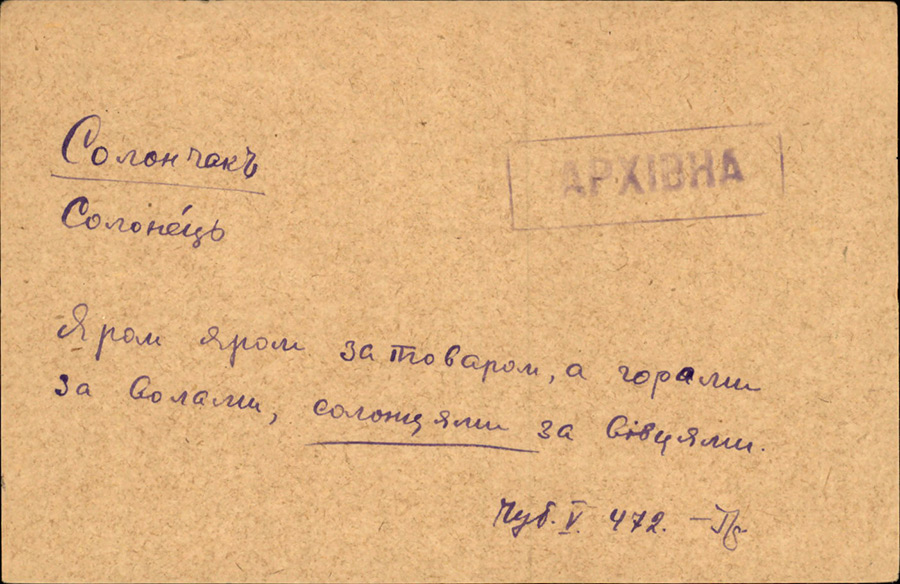 Солончакъ
АРХІВНА
Солоне́ць
Яром яром за товаром, а горами
за волами, солонцями за вівцями.
Чуб. V. 472.